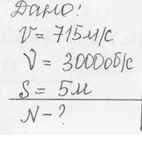 Дано:
V = 715 м/с
ν = 3000 об/с
S = 5 м
N - ?